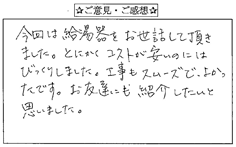 ☆ご意見・ご感想☆
今回は給湯器をお世話して頂き
ました。とにかくコストが安いのには
びっくりしました。工事もスムーズで、よかっ
たです。お友達にも紹介したいと
思いました。